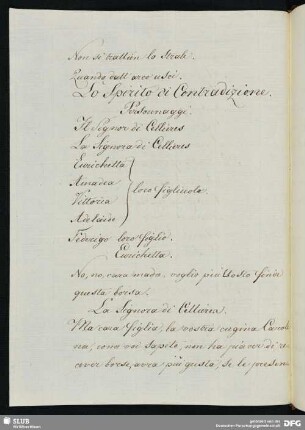 Non si trattien lo strale
Quando dall' arco uscì.
Lo Spirito di Contradizione.
Personnaggi.
Il Signor di Cellières
La Signora di Cellières
Enrichetta
Amadea
Vittoria
Adelaide
loro figliuole
Federigo loro figlio.
Enrichetta.
No, no, cara madre, voglio più tosto finire
questa borsa.
La Signora di Cellières.
Ma cara figlia, la vostra cugina Caroli
na, come voi sapete, non ha più di
cever borse, avrà più questa, se le presen
SLUB
DFG